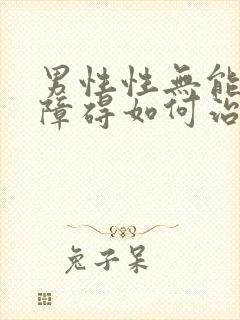 男性性無能
障碍如何治
兔子呆